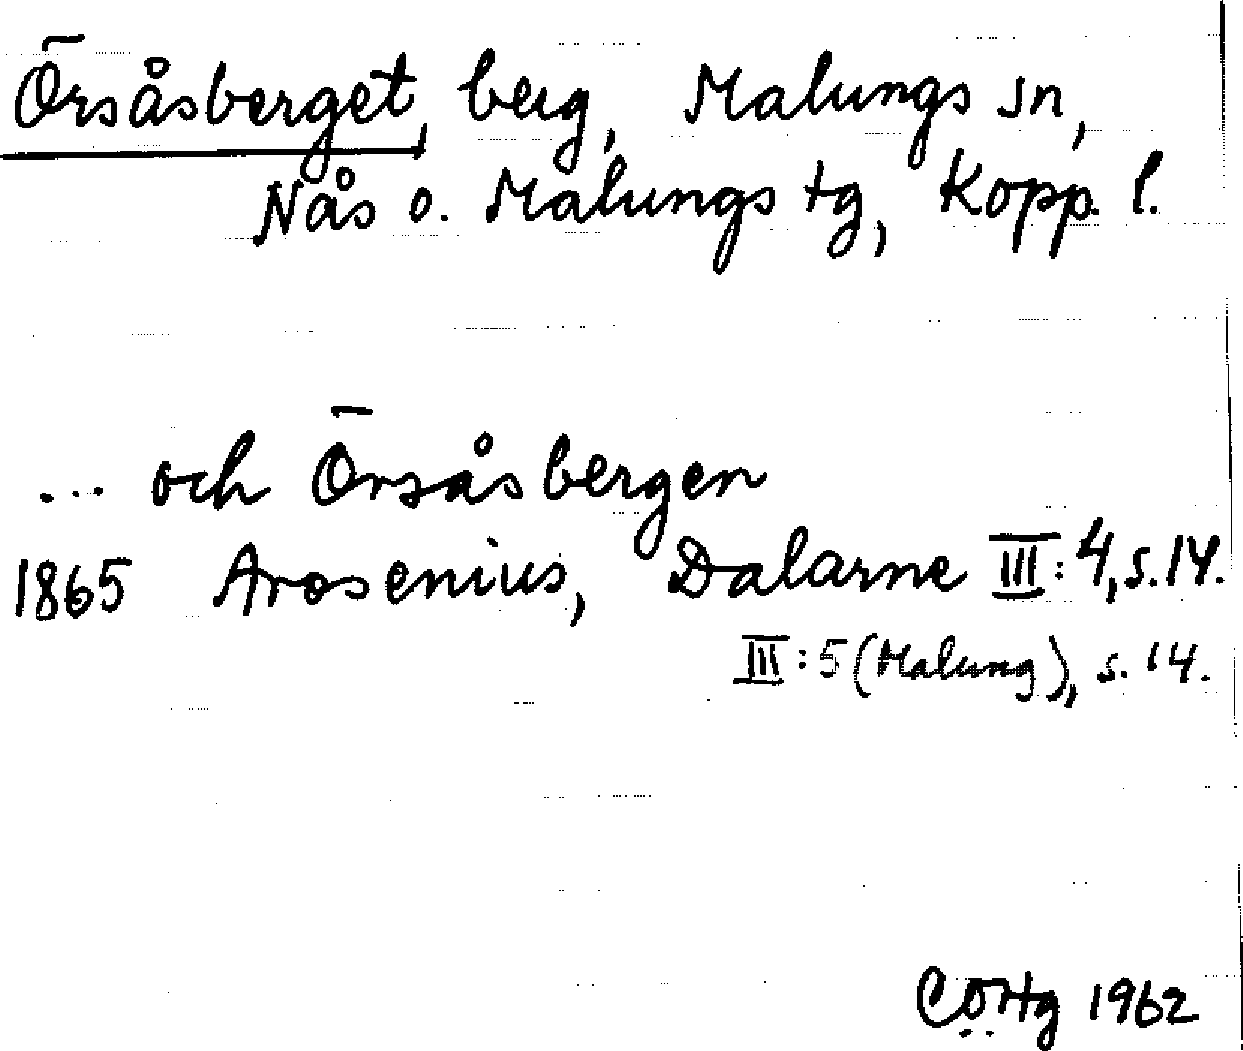 Örsåsberget, berg, Malungs sn,
Nås o. Malungs tg, Kopp. l.
... och Örsåsbergen
1865 Arosenius, Dalarne III:4, s. 14.
III:5 (Malung), s. 14.
1962